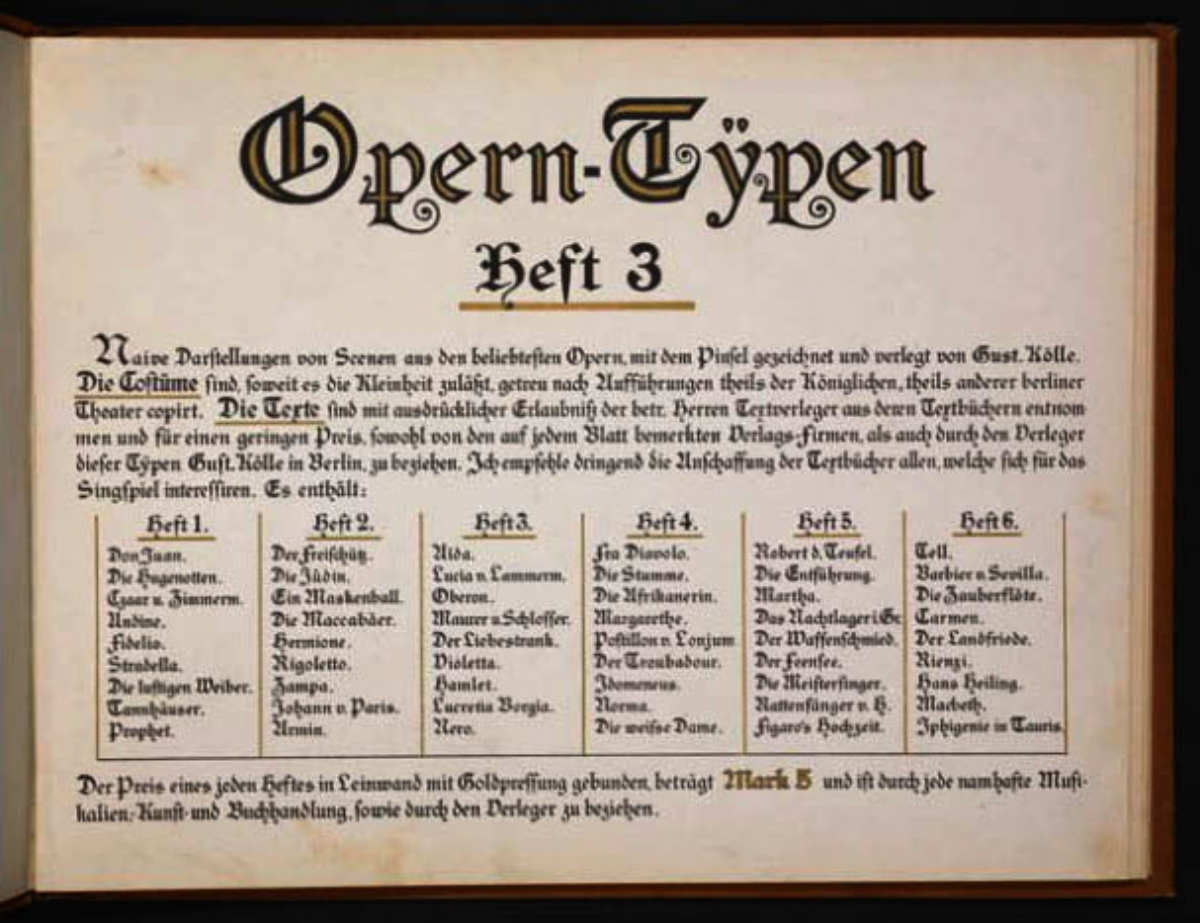 Opern-Tÿpen
Heft 3
Naive Darstellungen von Scenen aus den beliebtesten Opern, mit dem Pinsel gezeichnet und verlegt von Gust. Kölle.
Die Costüme sind, soweit es die Kleinheit zuläßt, getreu nach Aufführungen theils der Königlichen, theils anderer berliner
Theater copirt. Die Texte sind mit ausdrücklicher Erlaubniß der betr. Herren Textverleger aus deren Textbüchern entnom
men und für einen geringen Preis, sowohl von den auf jedem Blatt bemerkten Verlags-Firmen, als auch durch den Verleger
dieser Tÿpen Gust. Kölle in Berlin, zu beziehen. Ich empfehle dringend die Anschaffung der Textbücher allen, welche sich für das
Singspiel interessiren. Es enthält:
Heft 1.
Don Juan.
Die Hugenotten.
Czaar u. Zimmerm.
Undine.
Fidelio.
Stradella.
Die lustigen Weiber.
Tannhäuser.
Prophet.
Heft 2.
Der Freischütz.
Die Jüdin.
Ein Maskenball.
Die Maccabäer.
Hermione.
Rigoletto.
Zampa.
Johann v. Paris.
Armin.
Heft 3.
Aida.
Lucia v. Lammerm.
Oberon.
Maurer u. Schlosser.
Der Liebestrank.
Violetta.
Hamlet.
Lucretia Borgia.
Nero.
Heft 4.
Fra Diavolo.
Die Stumme.
Die Afrikanerin.
Margarethe.
Postillon v. Lonjum
Der Troubadour.
Idomeneus.
Norma.
Die weisse Dame.
Heft 5.
Robert d. Teufel.
Die Entführung.
Martha.
Das Nachtlager i. Gr.
Der Waffenschmied.
Der Feensee.
Die Meistersinger.
Rattenfänger v. H.
Figaro's Hochzeit.
Heft 6.
Tell.
Barbier v. Sevilla.
Die Zauberflöte.
Carmen.
Der Landfriede.
Rienzi.
Hans Heiling.
Macbeth.
Iphigenie in Tauris.
Der Preis eines jeden Heftes in Leinwand mit Goldpressung gebunden, beträgt Mark 5 und ist durch jede namhafte Musi-
kalien-Kunst- und Buchhandlung, sowie durch den Verleger zu beziehen.